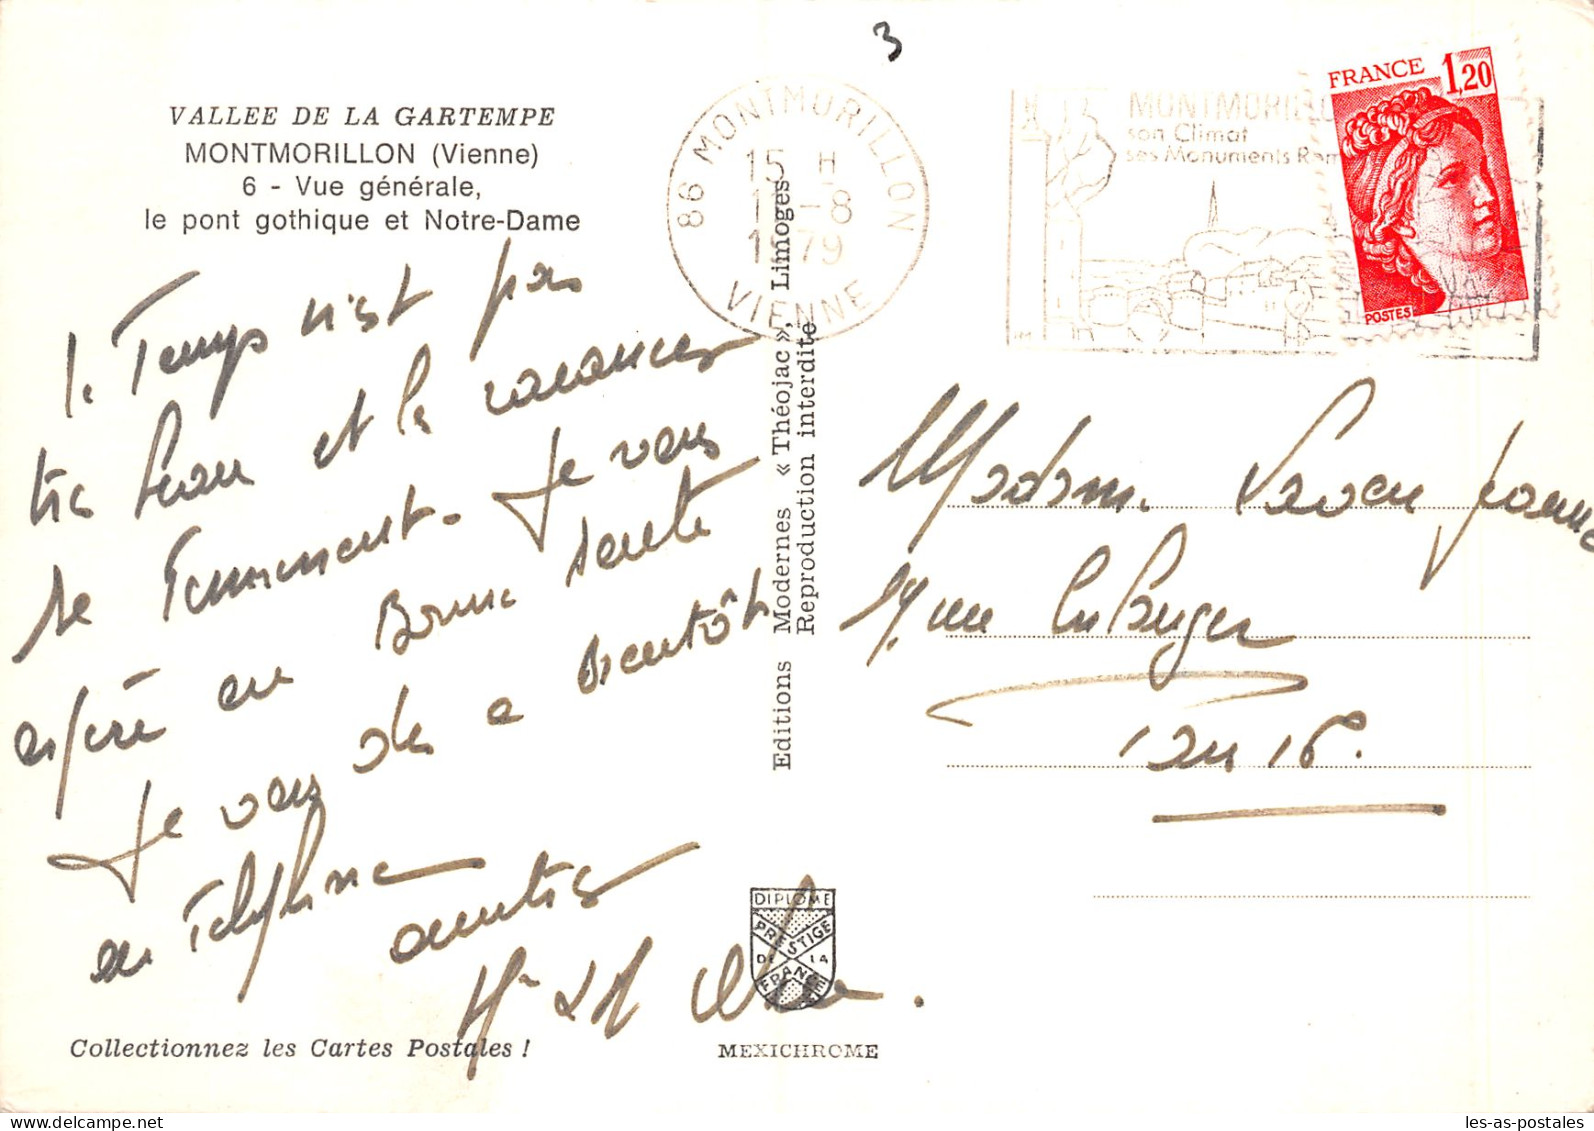 3
VALLEE DE LA GARTEMPE
MONTMORILLON (Vienne)
6 - Vue générale,
le pont gothique et Notre-Dame
le Temps n'est pas
très beau et les vacances
se Terminent. Je vous
espère en Bonne santé
Je vous dis a Bientôt
au Téléphone
amitiés
Mr et M
Collectionnez les Cartes Postales !
Editions Modernes « Théojac », Limoges
Reproduction interdite
DIPLOME
PRESTIGE
DE LA
FRANCE
MEXICHROME
86 MONTMORILLON
15 H
1 -8
1979
VIENNE
MONTMORILLO
son Climat
ses Monuments Rom
FRANCE 1,20
POSTES
Madame Jeanne
rue
Paris 16e.
les-as-postales